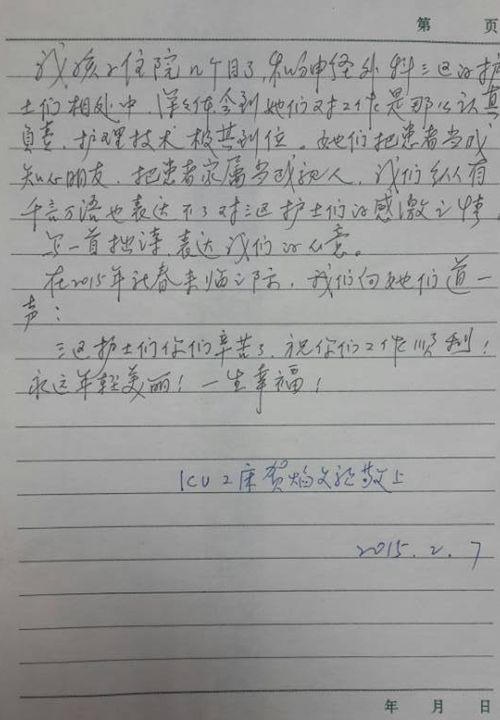 第 页
我孩子住院几个月了,和神经外科三区的护
士们相处中,深深体会到她们对工作是那么认真
负责,护理技术极其到位。她们把患者当成
知心朋友,把患者家属当成亲人,我们纵有
千言万语也表达不了对三区护士们的感激之情,
写一首拙诗,表达我们的心意。
在2015年新春来临之际,我们向她们道一
声:
三区护士们你们辛苦了,祝你们工作顺利!
永远年轻美丽!一生幸福!
ICU 2床贺焰父亲敬上
2015.2.7
年 月 日